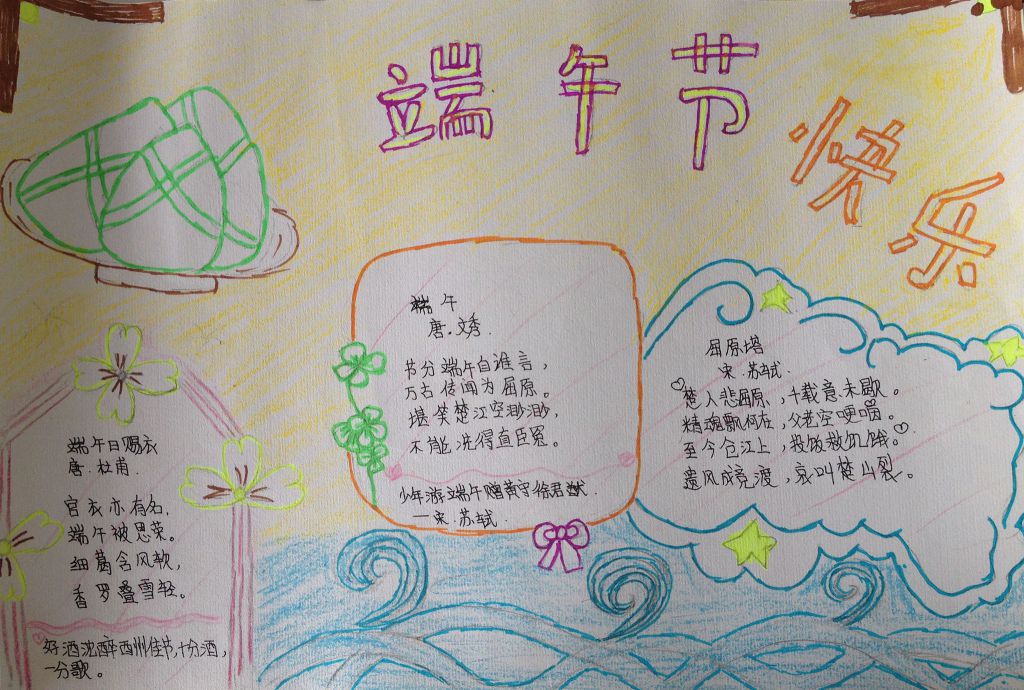 端午节
快乐
端午
唐.文秀
节分端午自谁言，
万古传闻为屈原。
堪笑楚江空渺渺，
不能洗得直臣冤。
少年游端午赠黄守徐君猷.
—宋.苏轼.
屈原塔
宋.苏轼.
楚人悲屈原，千载意未歇。
精魂飘何在，父老空哽咽。
至今仓江上，投饭救饥饿。
遗风成竞渡，哀叫楚山裂。
端午日赐衣
唐.杜甫.
官衣亦有名.
端午被恩荣。
细葛含风软，
香罗叠雪轻。
好酒沈醉酉州佳节，十分酒，
一分歌。